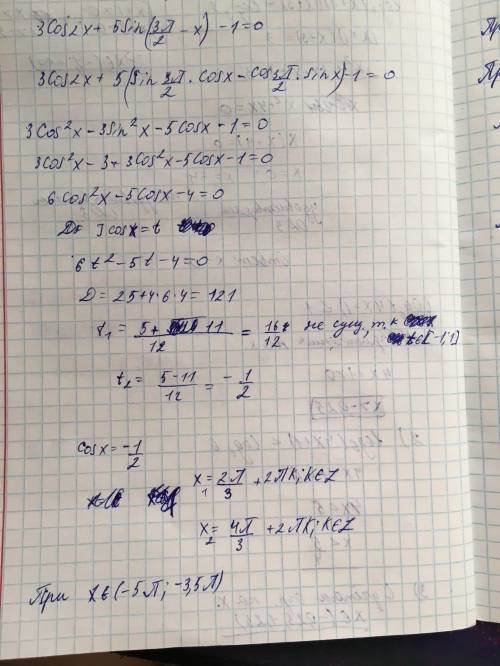 3Cos2x + 5Sin(3π/2 - x) - 1 = 0
3Cos2x + 5(Sin 3π/2 · Cosx - Cos 3π/2 · Sinx) - 1 = 0
3Cos²x - 3Sin²x - 5Cosx - 1 = 0
3Cos²x - 3 + 3Cos²x - 5Cosx - 1 = 0
6Cos²x - 5Cosx - 4 = 0
cosx = t
6t² - 5t - 4 = 0
D = 25 + 4·6·4 = 121
t₁ = (5 + 11)/12 = 16/12 не сущ, т.к t∈[-1;1]
t₂ = (5 - 11)/12 = -1/2
Cosx = -1/2
x₁ = 2π/3 + 2πk; k∈Z
x₂ = 4π/3 + 2πk; k∈Z
При x∈(-5π; -3,5π)